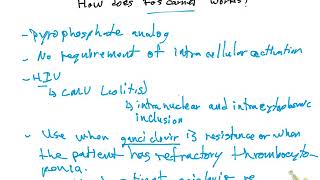 How does foscarnet works?
- Pyrophosphate analog
- No requirement of intracellular activation
- HIV
↳ CMV (colitis)
↳ intranuclear and intracytoplasmic
inclusion
- Use when ganciclovir is resistance or when
the patient has refractory thrombocyto
penia.